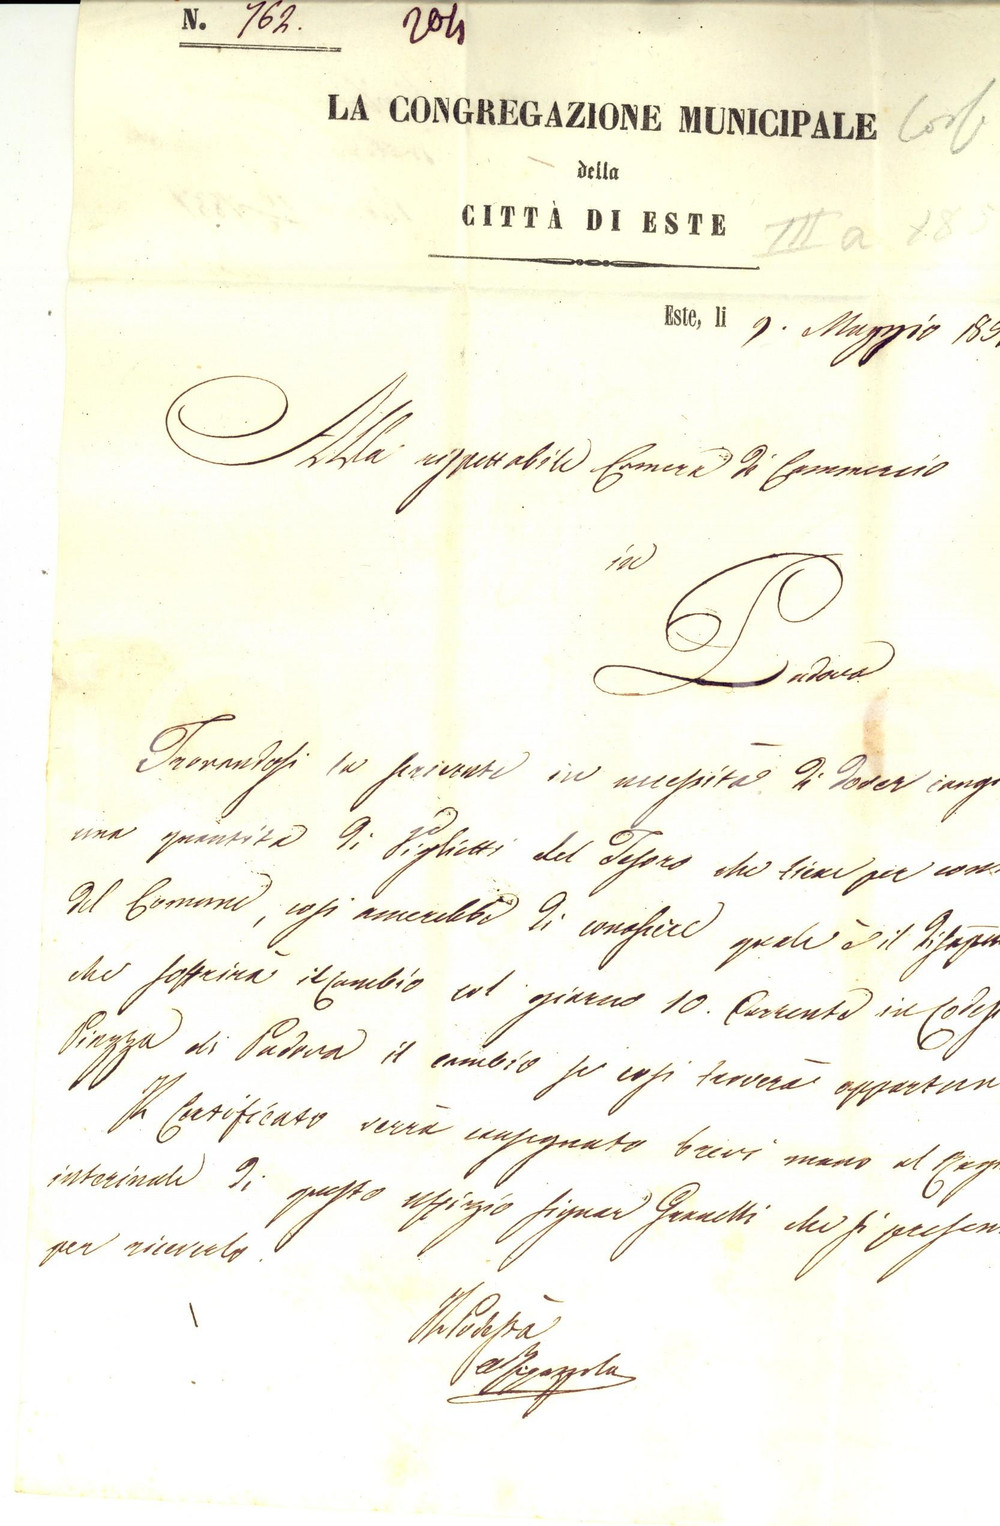 N. 762. 204
LA CONGREGAZIONE MUNICIPALE
della
CITTÀ DI ESTE
III a 185
Este, li 9. Maggio 185
Alla rispettabile Camera di Commercio
in
Padova
Trovandosi la scrivente in necessità di dover cang
una quantità di Viglietti del Tesoro che tiene per con
del Comune, così amerebbe di conoscere quale è il disap
che soffrirà il cambio col giorno 10. Corrente in Codes
Piazza di Padova il cambio se così troverà opportun
Il Certificato verrà consegnato brevi mano al Rag
interinale di questo uffizio signor che si presen
per riceverlo.
Il Podestà